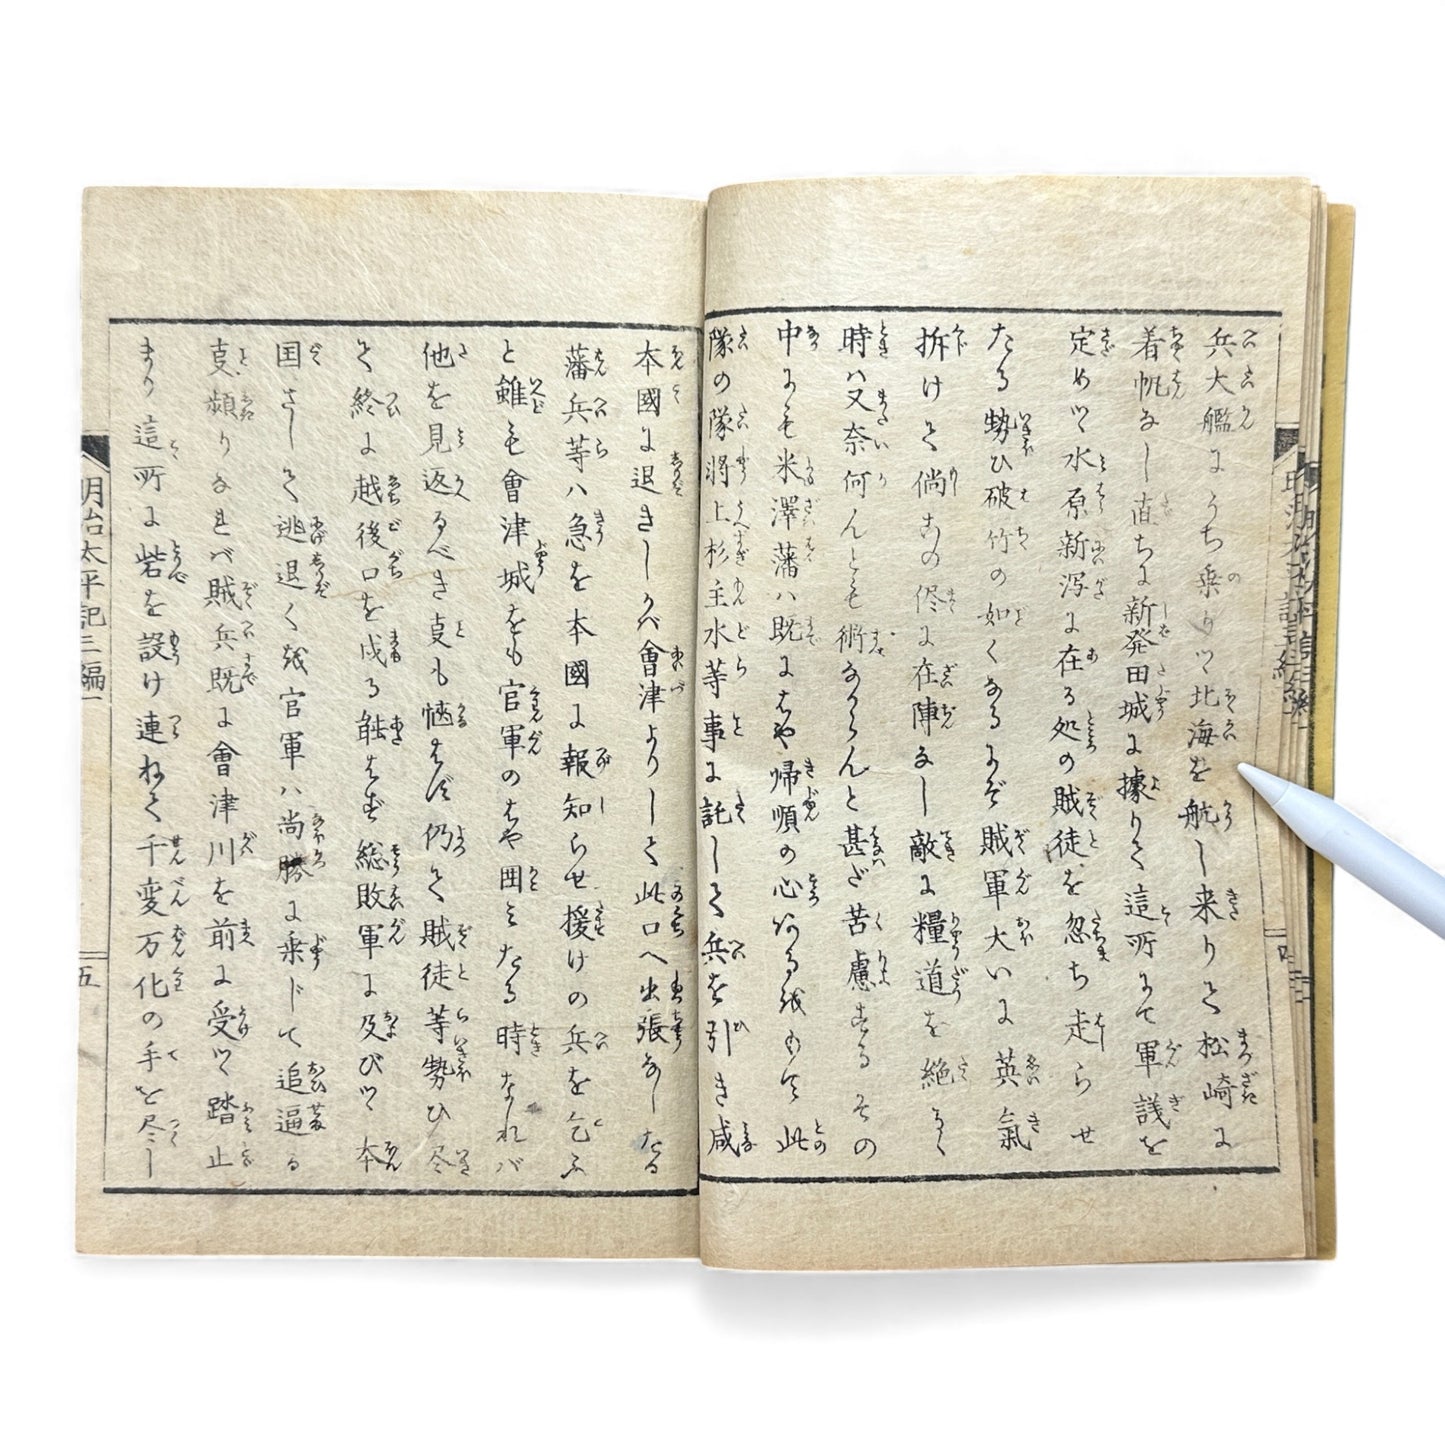 兵大艦にうち乗りツ北海を航し来りて松崎に
着帆なし直ちに新発田城に據りて這所にて軍議を
定めツ水原新泻に在る処の賊徒を忽ち走らせ
たる勢ひ破竹の如くなるにぞ賊軍大いに英氣
拆けて倘この侭に在陣なし敵に糧道を絶るゝ
時ハ又奈何んとも術なからんと甚ざ苦慮する その
中にも米澤藩ハ既にはや帰順の心ある故もて此
隊の隊将上杉主水等事に託して兵を引き咸
本國に退きしかバ會津よりして此口へ出張なしたる
藩兵等ハ急を本國に報知らせ援けの兵を乞ふ
と雖も會津城をも官軍のはや囲みたる時なれバ
他を見返るべき も 仍て賊徒等勢ひ尽
て終に越後口を戍る能はず総敗軍に及びツ本
国さして逃退く故官軍ハ尚勝に乗じて追逼る
頻りなれバ賊兵既に會津川を前に受ツ踏止
まり這所に砦を設け連ねて千変万化の手を尽し
明治太平記三編一
五